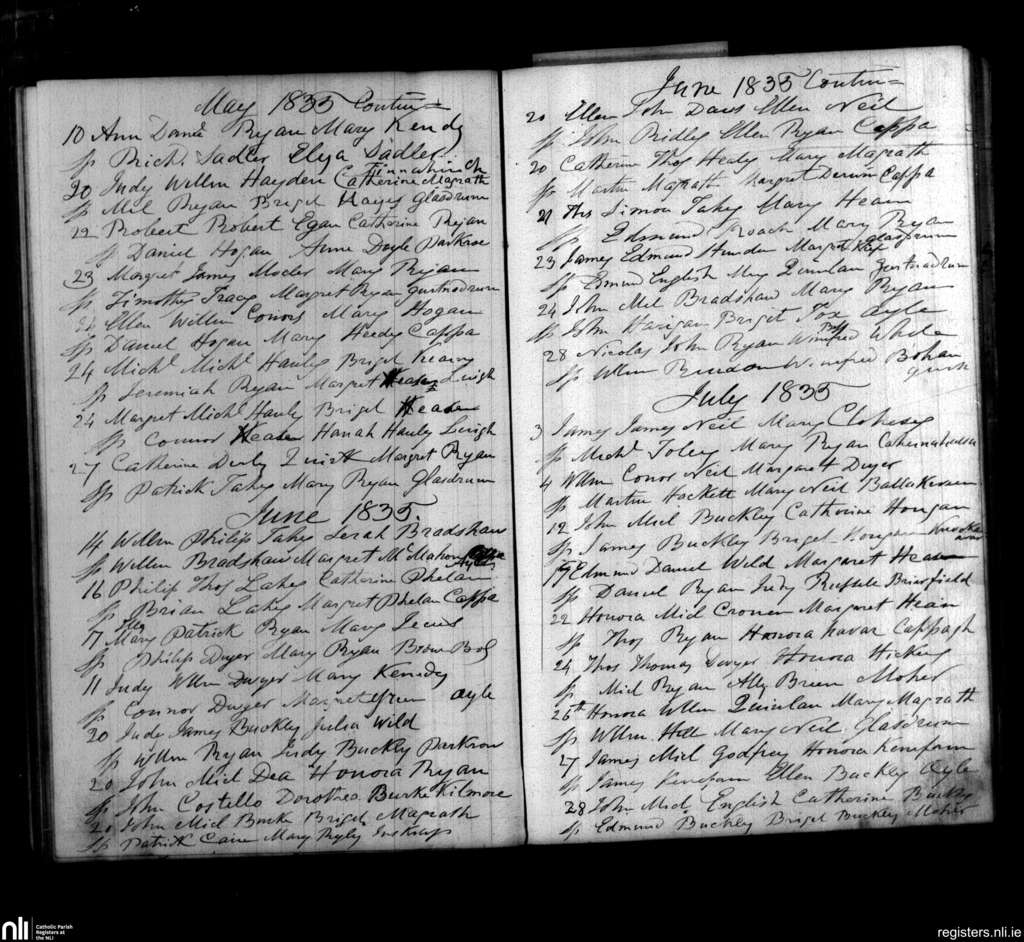 May 1835 Contin=
10 Ann Danl Ryan Mary Kendy
sp Richd Sadler Eliza Sadler
20 Judy Willm Hayden Catherine Magrath
sp Mil Ryan Briget Hayes Glasdrum
22 Robert Robert Egan Catherine Ryan
sp Daniel Hogan Anne Doyle Parkroe
23 Margret James Mocler Mary Ryan
sp Timothy Tracy Margret Ryan Gurtnadrum
24 Ellen Willm Conors Mary Hogan
sp Daniel Hogan Mary Heedy Cappa
24 Michl Michl Hanly Briget Kearny
sp Jeremiah Ryan Margret
24 Margret Michl Hanly Briget
sp Connor Hanah Hanly
27 Catherine Derby Quirk Margret Ryan
sp Patrick Fahy Mary Ryan Glasdrum
June 1835.
14 Willm Philip Fahy Serah Bradshaw
sp Willm Bradshaw Margret McMahon Ayle
16 Philip Thos Lahy Catherine Phelan
sp Brian Lahy Margret Phelan Cappa
17 Mary Patrick Ryan Mary
sp Philip Dwyer Mary Ryan Bog
11 Judy Wllm Dwyer Mary Kenedy
sp Connor Dwyer Margret Ayle
20 Jude James Buckley Julia Wild
sp Wllm Ryan Judy Buckly Parkroe
20 John Micl Dea Honora Ryan
sp John Costello Dorothea Burke Kilmore
John Micl Burke Briget Magrath
sp Patrick Mary
June 1835 Contin=
20 Ellen John Davis Ellen Neil
sp John Ridley Ellen Ryan Cappa
20 Catherine Thos Healy Mary Magrath
sp Martin Magrath Margret Cappa
21 Thos Simon Fahy Mary Hearn
sp Edmund Roach Mary Ryan
23 James Edmund Margret Glasdrum
sp Edmund English Mary Quinlan Gurtnadrum
24 John Mil Bradshaw Mary Ryan
sp John Harigan Briget Fox Ayle
28 Nicolas John Ryan Winifred White
sp Wllm Winifred Bohan
July 1835
3 James James Neil Mary
sp Michl Foley Mary Ryan
4 Wllm Conor Neil Margarett Dwyer
sp Martin Hackett Mary Neil
12 John Micl Buckley Catherine Hourgan
sp James Buckley Briget Hourgan
17 Edmund Daniel Wild Margaret Hearn
sp Daniel Ryan Judy Russell Briarsfield
22 Honora Micl Cronen Margaret Hearn
sp Thos Ryan Honora Cappagh
24 Thos Thomas Dwyer Honora Hickey
sp Micl Ryan Ally Breen Moher
26th Honora Wllm Quinlan Mary Magrath
sp Wllm Hall Mary Neil Glasdrum
27 James Micl Godfrey Honora
sp James Ellen Buckley Ayle
28 John Micl English Catherine Buckley
sp Edmund Buckley Briget Buckley Moher
nli
Catholic Parish
Registers at
the NLI
registers.nli.ie